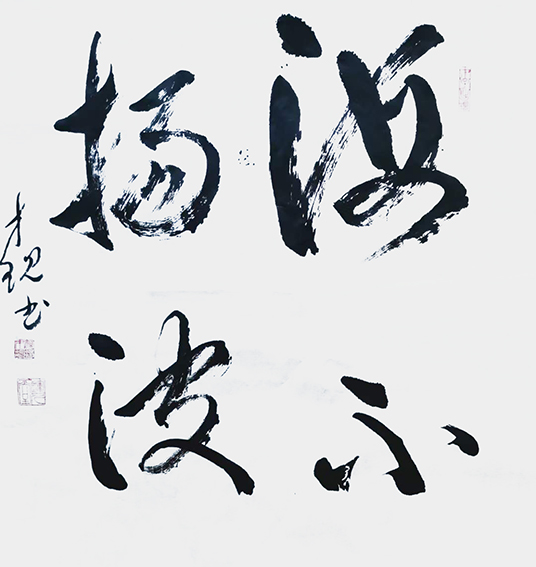 海不
扬波
才観书